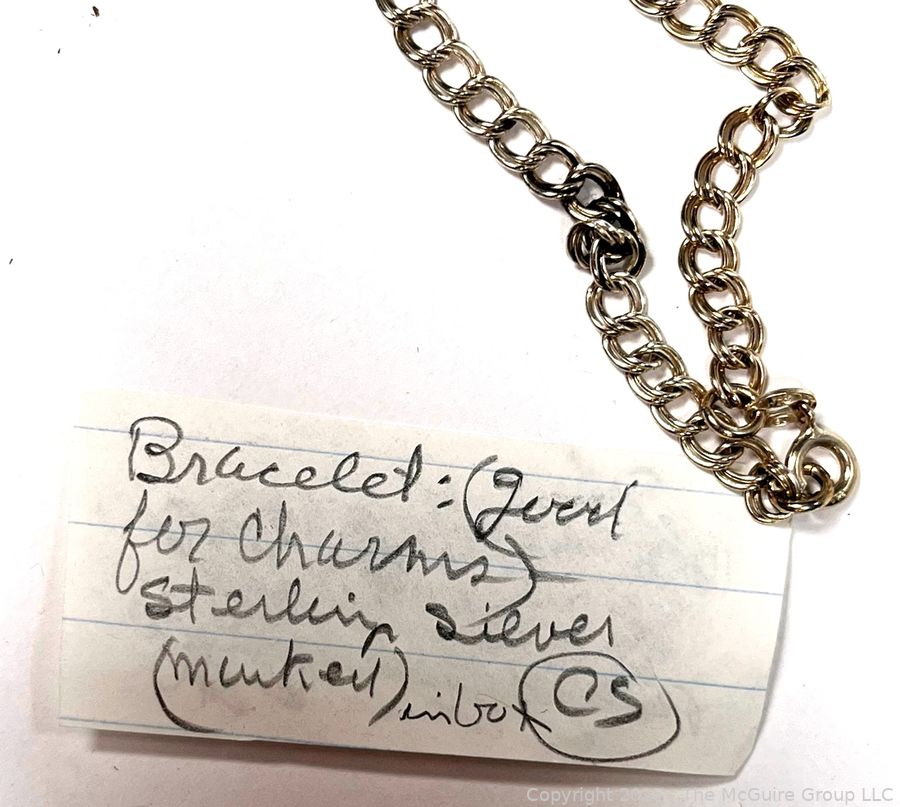 Bracelet: (good
for Charms)
Sterling Silver
(marked) in box CS
Copyright 20 The McGuire Group LLC